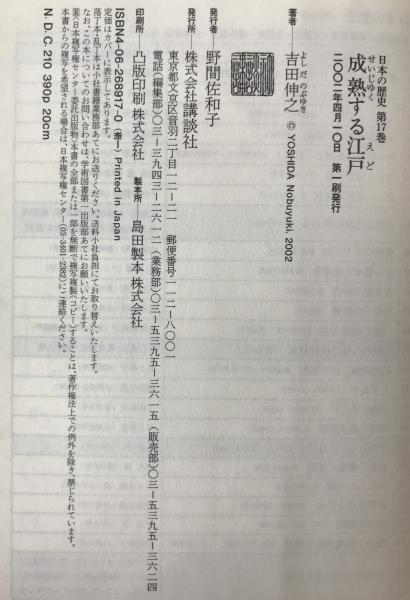 日本の歴史 第17巻
せいじゅく えど
成熟する江戸
二〇〇二年四月一〇日 第一刷発行
著者―吉田伸之 © YOSHIDA Nobuyuki, 2002
よしだのぶゆき
発行者―野間佐和子
発行所―株式会社講談社
東京都文京区音羽二丁目一二―二一 郵便番号一一二―八〇〇一
電話(編集部)〇三―三九四三―二六一二(業務部)〇三―五三九五―三六一五(販売部)〇三―五三九五―三六二四
印刷所―凸版印刷株式会社 製本所―島田製本株式会社
ISBN4-06-268917-0 Printed in Japan
定価はカバーに表示してあります。
落丁本・乱丁本は小社書籍業務部あてにお送りください。送料小社負担にてお取り替えいたします。
なお、この本についてのお問い合わせは、学術図書第一出版部あてにお願いいたします。
〈日本複写権センター委託出版物〉本書の全部または一部を無断で複写複製(コピー)することは、著作権法上での例外を除き、禁じられています。
本書からの複写を希望される場合は、日本複写権センター(03-3401-2382)にご連絡ください。
N.D.C.210 390p 20cm